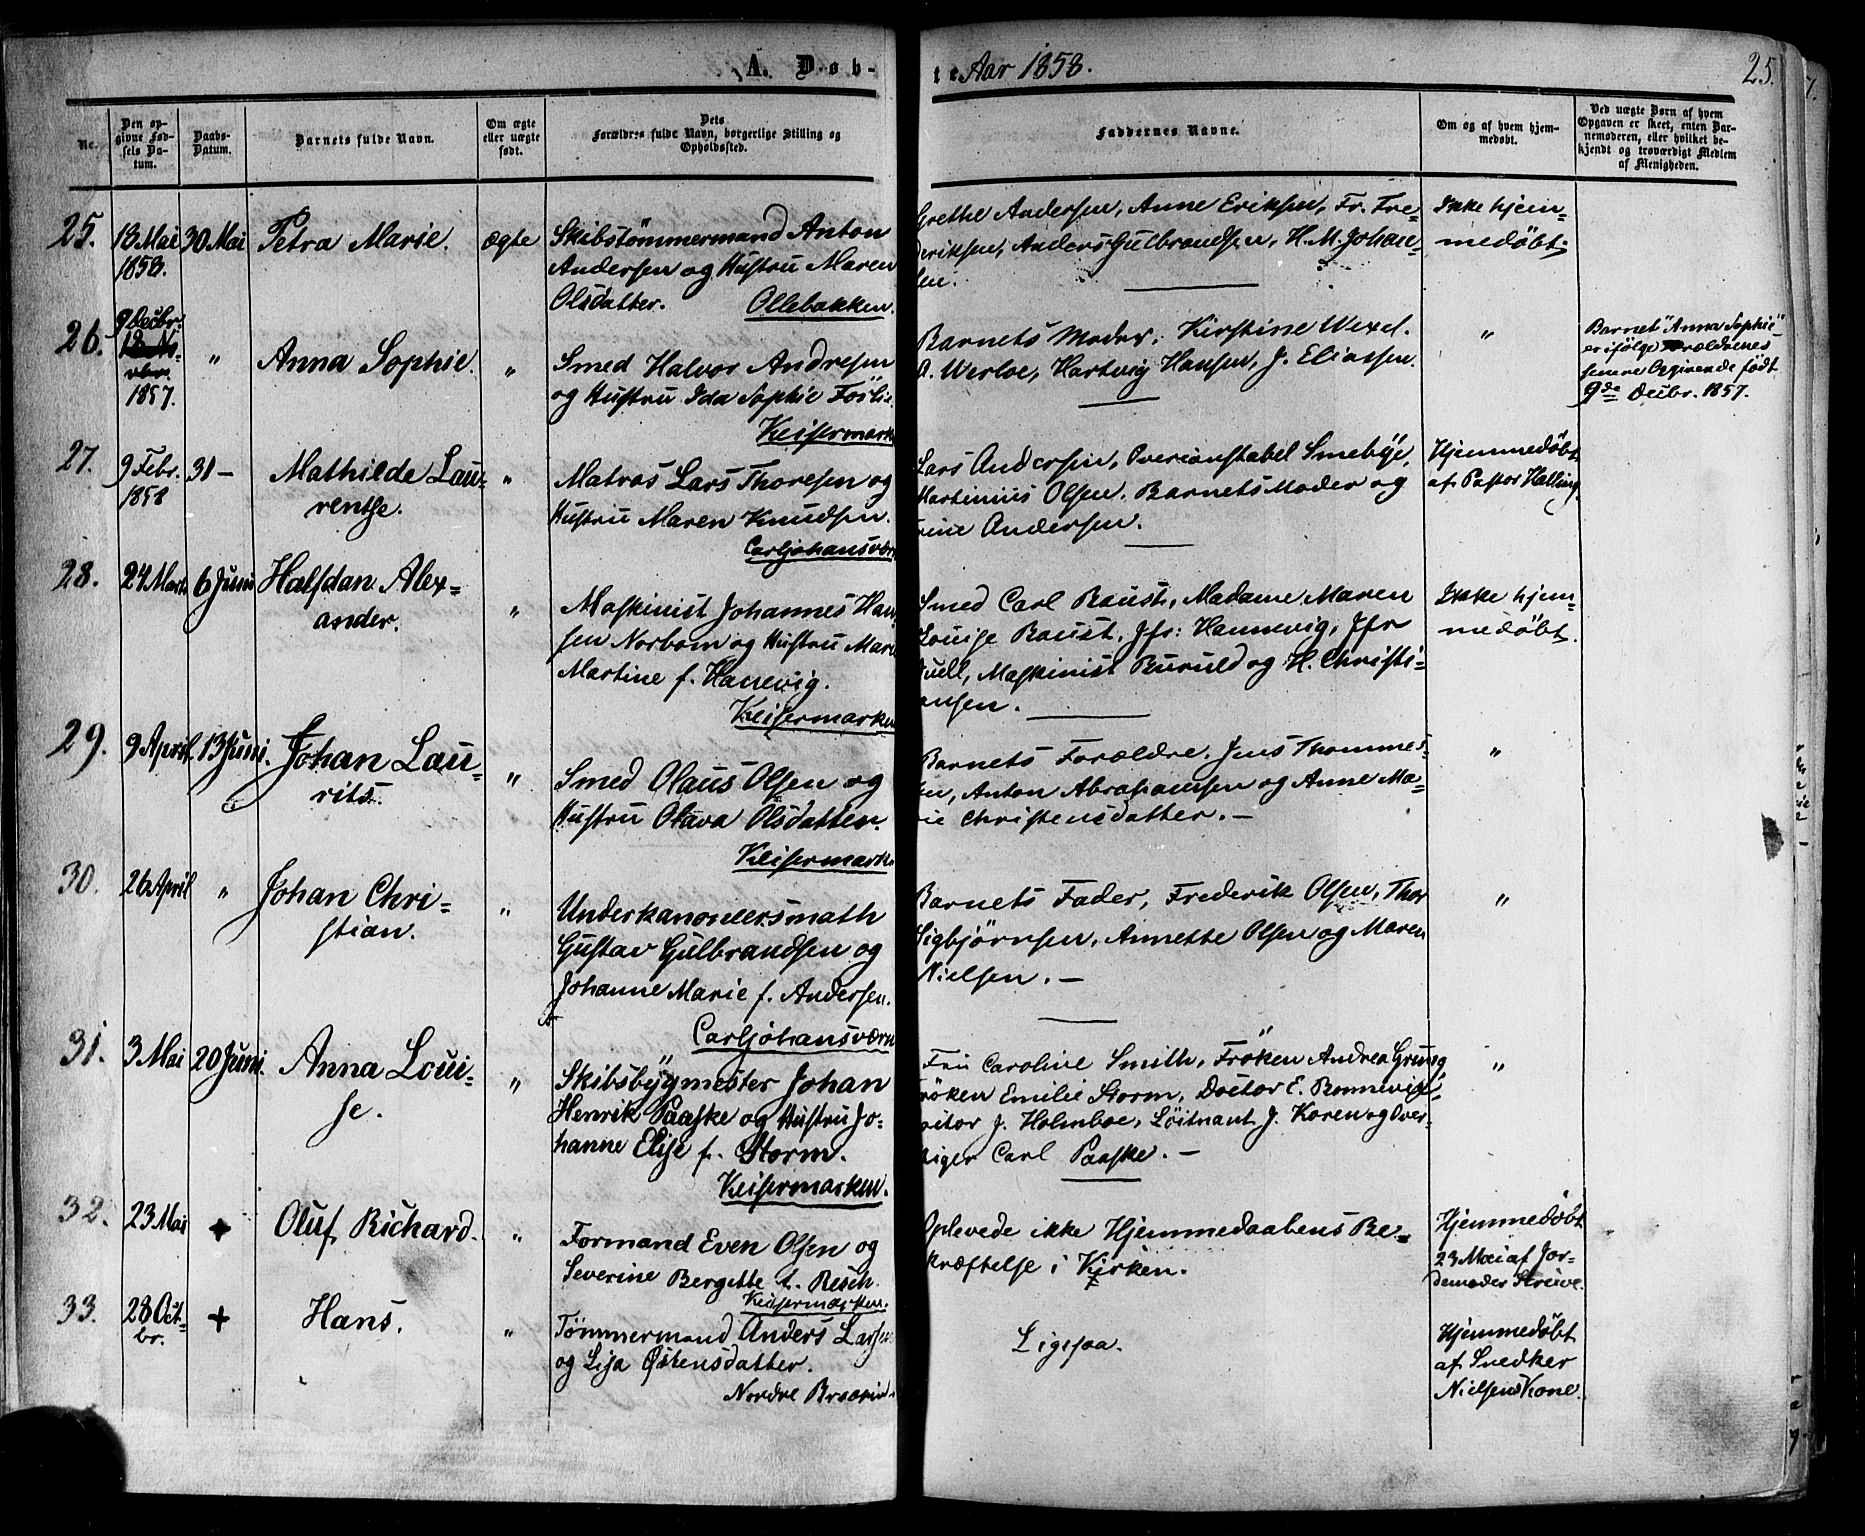 A. Døb-
te Aar 1858.
25.
Nr.
Den op-
givne Fød-
sels Da-
tum.
Daabs-
Datum.
Barnets fulde Navn.
Om ægte
eller uægte
født.
Dets
Forældres fulde Navn, borgerlige Stilling og
Opholdssted.
Faddernes Navne.
Om og af hvem hjem-
medøbt.
Ved uægte Børn af hvem
Opgaven er skeet, enten Bar-
nemoderen, eller hvilket be-
kjendt og troværdigt Medlem
af Menigheden.
25.
18 Mai
1858.
30 Mai
Petra Marie.
ægte
Skibstömmermand Anton
Andersen og Hustru Maren
Olsdatter. Ollebakken.
Grethe Andersen, Anne Eriksen, Fr. Fre-
deriksen, Anders Gulbrandsen, H. M. Johan-
sen.
Ikke hjem-
medøbt.
26.
9 Decbr.
1857.
"
Anna Sophie.
"
Smed Halvor Andresen
og Hustru Ida Sophie Föslie.
Keisermark
Barnets Moder, Kirstine Wexel.
A. Werloe, Hartvig Hansen, J. Eliassen.
"
Barnet "Anna Sophie"
er ifølge Forældrenes
senere Opgivende født
9de Decbr. 1857.
27.
9 Febr.
1858
31 –
Mathilde Lau-
rentse.
"
Matros Lars Thoresen og
Hustru Maren Knudsen.
Carljohansværn
Lars Andersen, Overconstabel Smebye,
Martinius Olsen. Barnets Moder og
rine Andersen.
Hjemmedøbt
af Pastor Halling
28.
24 Marts
6 Juni
Halfdan Alex-
ander.
"
Maskinist Johannes Han-
sen Norbom og Hustru Mari
Martine f. Hanevig.
Keisermarken
Smed Carl Baust, Madame Maren
Louise Baust, Jfr: Hannevig, Jfr
Maskinist Buruld og H. Christi-
ansen.
Ikke hjem-
medøbt.
29.
9 April.
13 Juni.
Johan Lau-
rits.
"
Smed Olaus Olsen og
Hustru Olava Olsdatter.
Keisermark
Barnets Forældre, Jens Thommes-
en, Anton Abrahamsen og Anne Ma-
rie Christensdatter. –
"
30.
26 April
"
Johan Chri-
stian.
"
Underkanoneersmath
Gustav Gulbrandsen og
Johanne Marie f. Andersen.
Carljohansværn
Barnets Fader, Frederik Olsen, Thor
Sigbjörnsen, Annette Olsen og Maren
Nielsen. –
"
31.
3 Mai
20 Juni.
Anna Loui-
se.
"
Skibsbygmester Johan
Henrik Paaske og Hustru Jo-
hanne Elise f. Storm.
Keisermarken.
Fru Caroline Smith, Fröken Andrea Grung,
Fröken Emilie Storm, Doctor E. Bonnevige
J. Holmboe, Löitnant J. Koren og Over-
Carl Paaske. –
"
32.
23 Mai
+
Oluf Richard.
"
Formand Even Olsen og
Severine Bergette f. Resch.
Keisermarken.
Oplevede ikke Hjemmedaabens Be-
kræftelse i Kirken.
Hjemmedøbt
23 Mai af Jor-
demoder Struve.
33.
28 Oct-
br.
+
Hans.
"
Tömmermand Anders Larsen
og Lisa Østensdatter.
Nordre Braarud
Ligesaa.
Hjemmedøbt
af Snedker
Nielsens Kone.